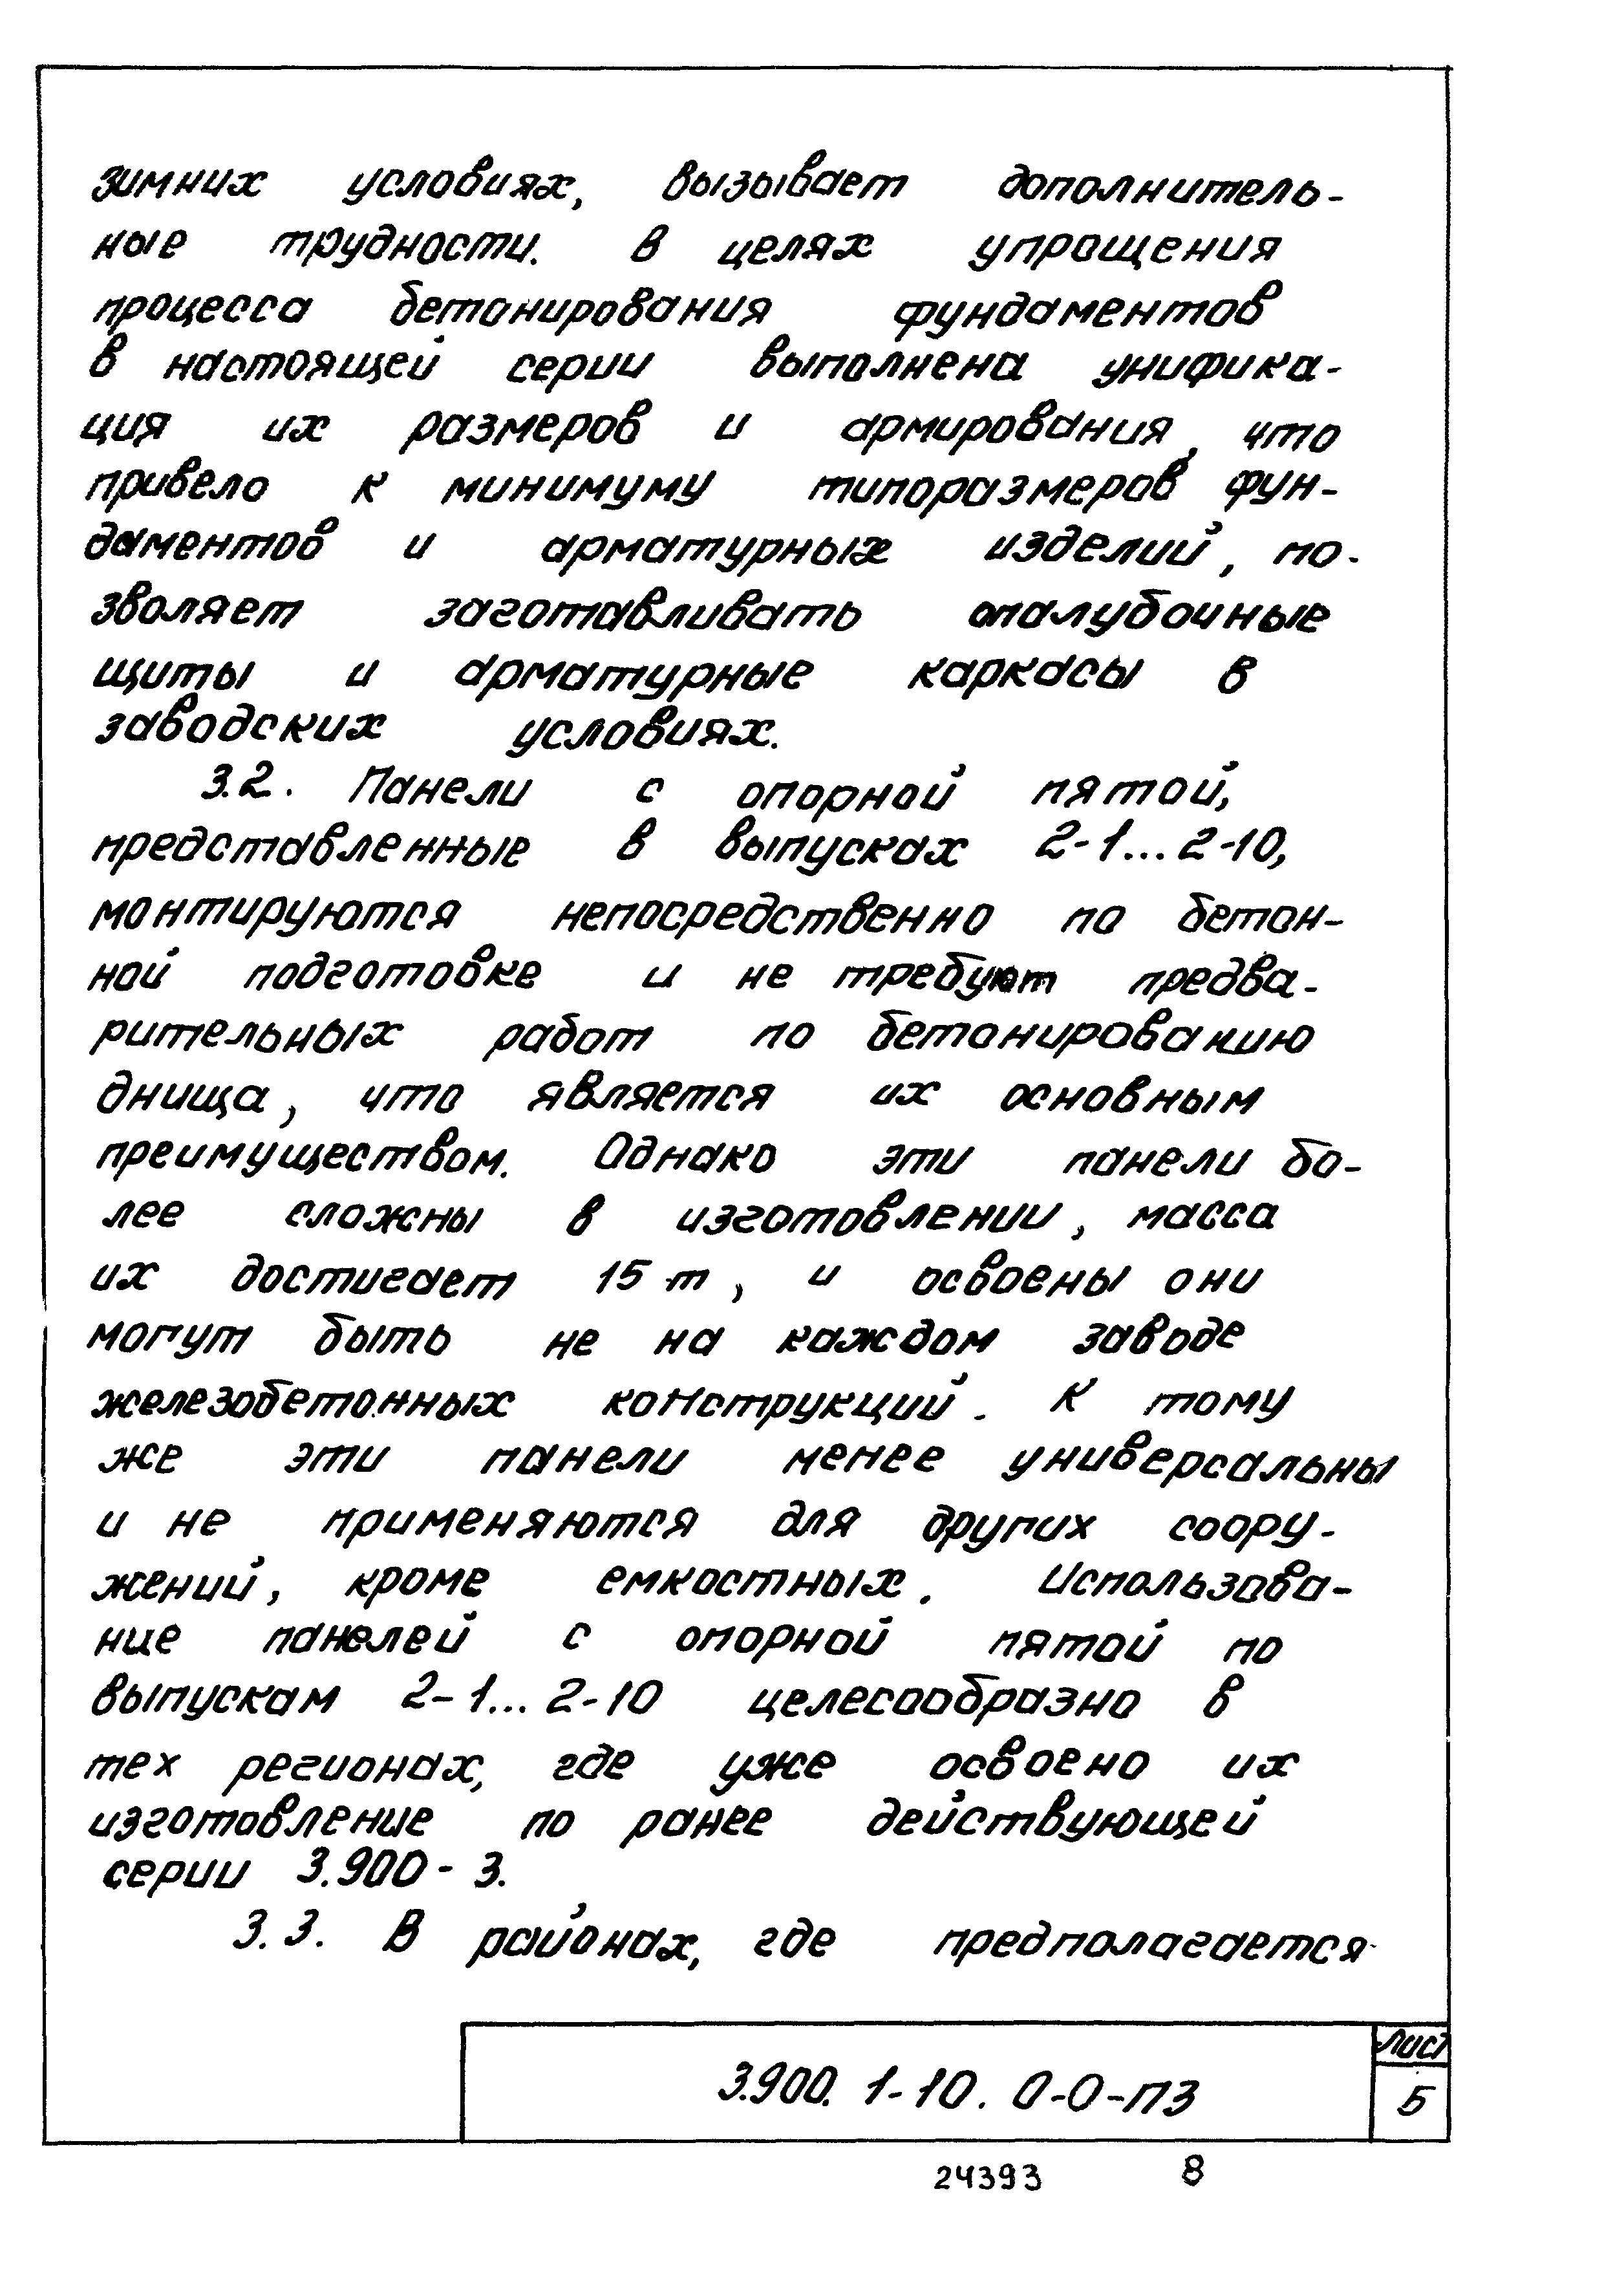 зимних условиях, вызывает дополнитель-
ные трудности. в целях упрощения
процесса бетонирования фундаментов
в настоящей серии выполнена унифика-
ция их размеров и армирования, что
привело к минимуму типоразмеров фун-
даментов и арматурных изделий, по-
зволяет заготавливать опалубочные
щиты и арматурные каркасы в
заводских условиях.
3.2. Панели с опорной пятой,
представленные в выпусках 2-1...2-10,
монтируются непосредственно по бетон-
ной подготовке и не требуют предва-
рительных работ по бетонированию
днища, что является их основным
преимуществом. Однако эти панели бо-
лее сложны в изготовлении, масса
их достигает 15 т, и освоены они
могут быть не на каждом заводе
железобетонных конструкций. К тому
же эти панели менее универсальны
и не применяются для других соору-
жений, кроме емкостных. Использова-
ние панелей с опорной пятой по
выпускам 2-1...2-10 целесообразно в
тех регионах, где уже освоено их
изготовление по ранее действующей
серии 3.900-3.
3.3. В районах, где предполагается
3.900.1-10.0-0-ПЗ
Лист
5
24393 8